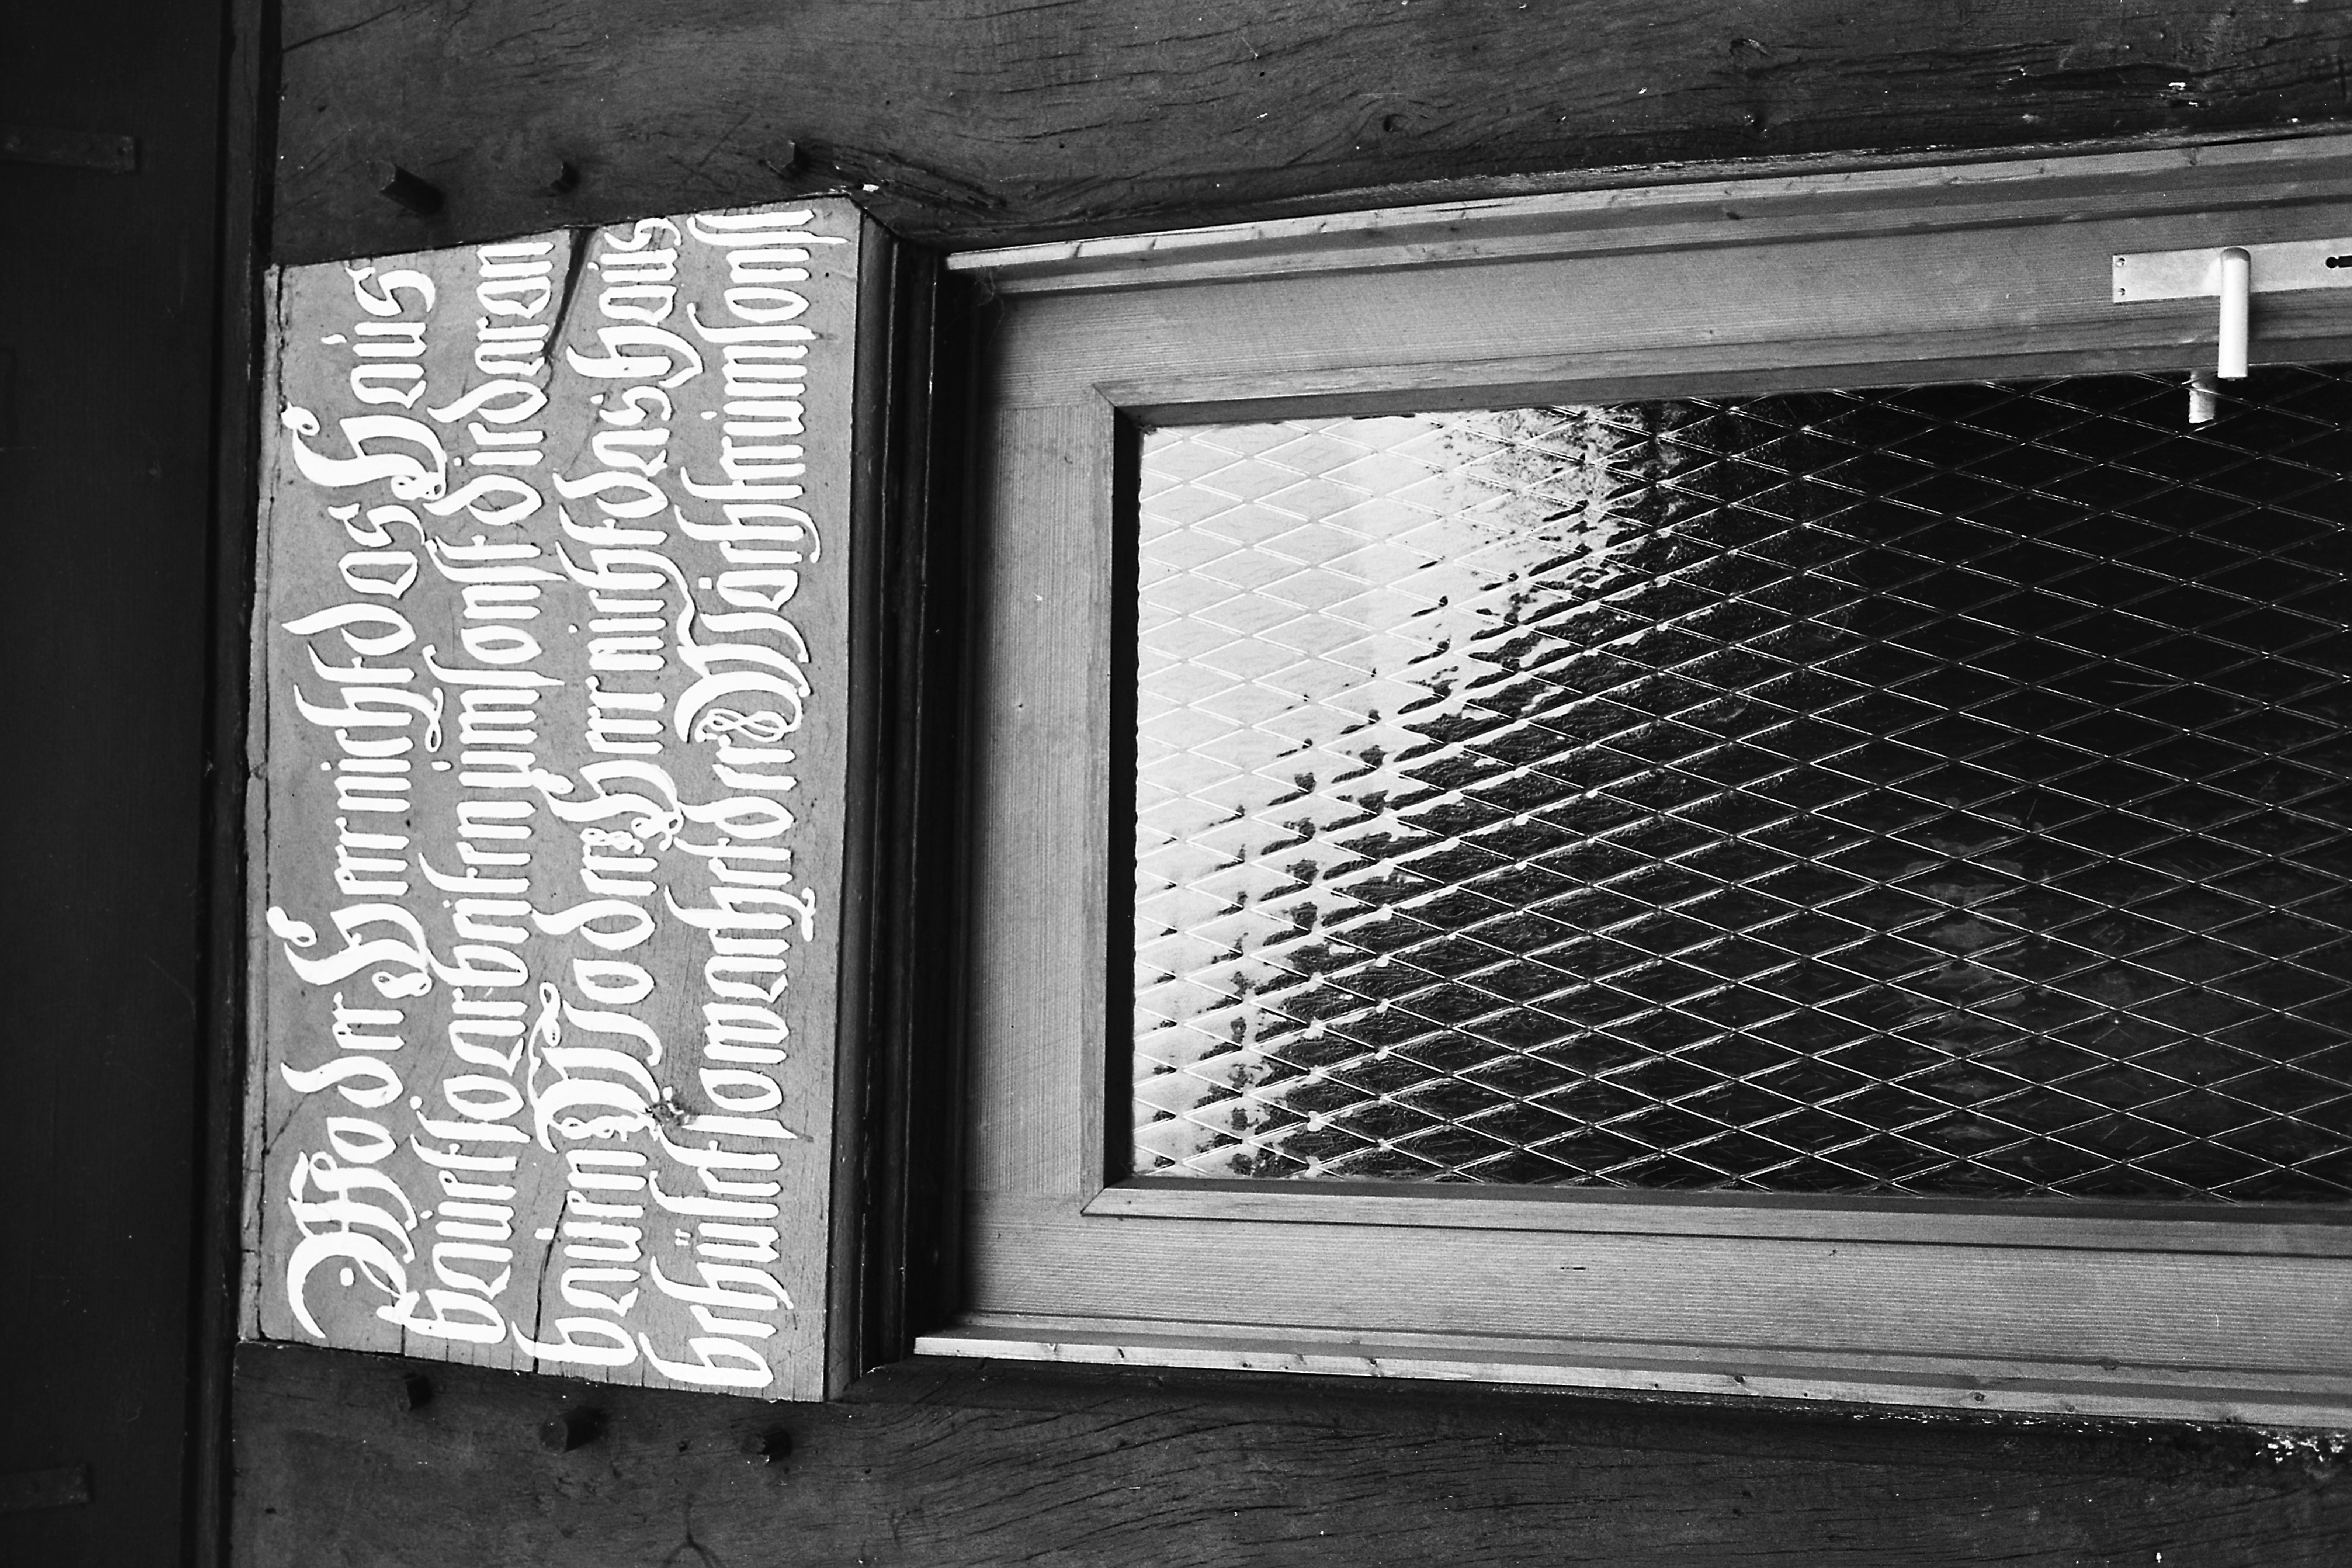 Wo der Herr nicht das Haus
bauet so arbeiten umsonst die daran
bauen Wo der Herr nicht das haus
behütet so wachet der Wächter umsonst